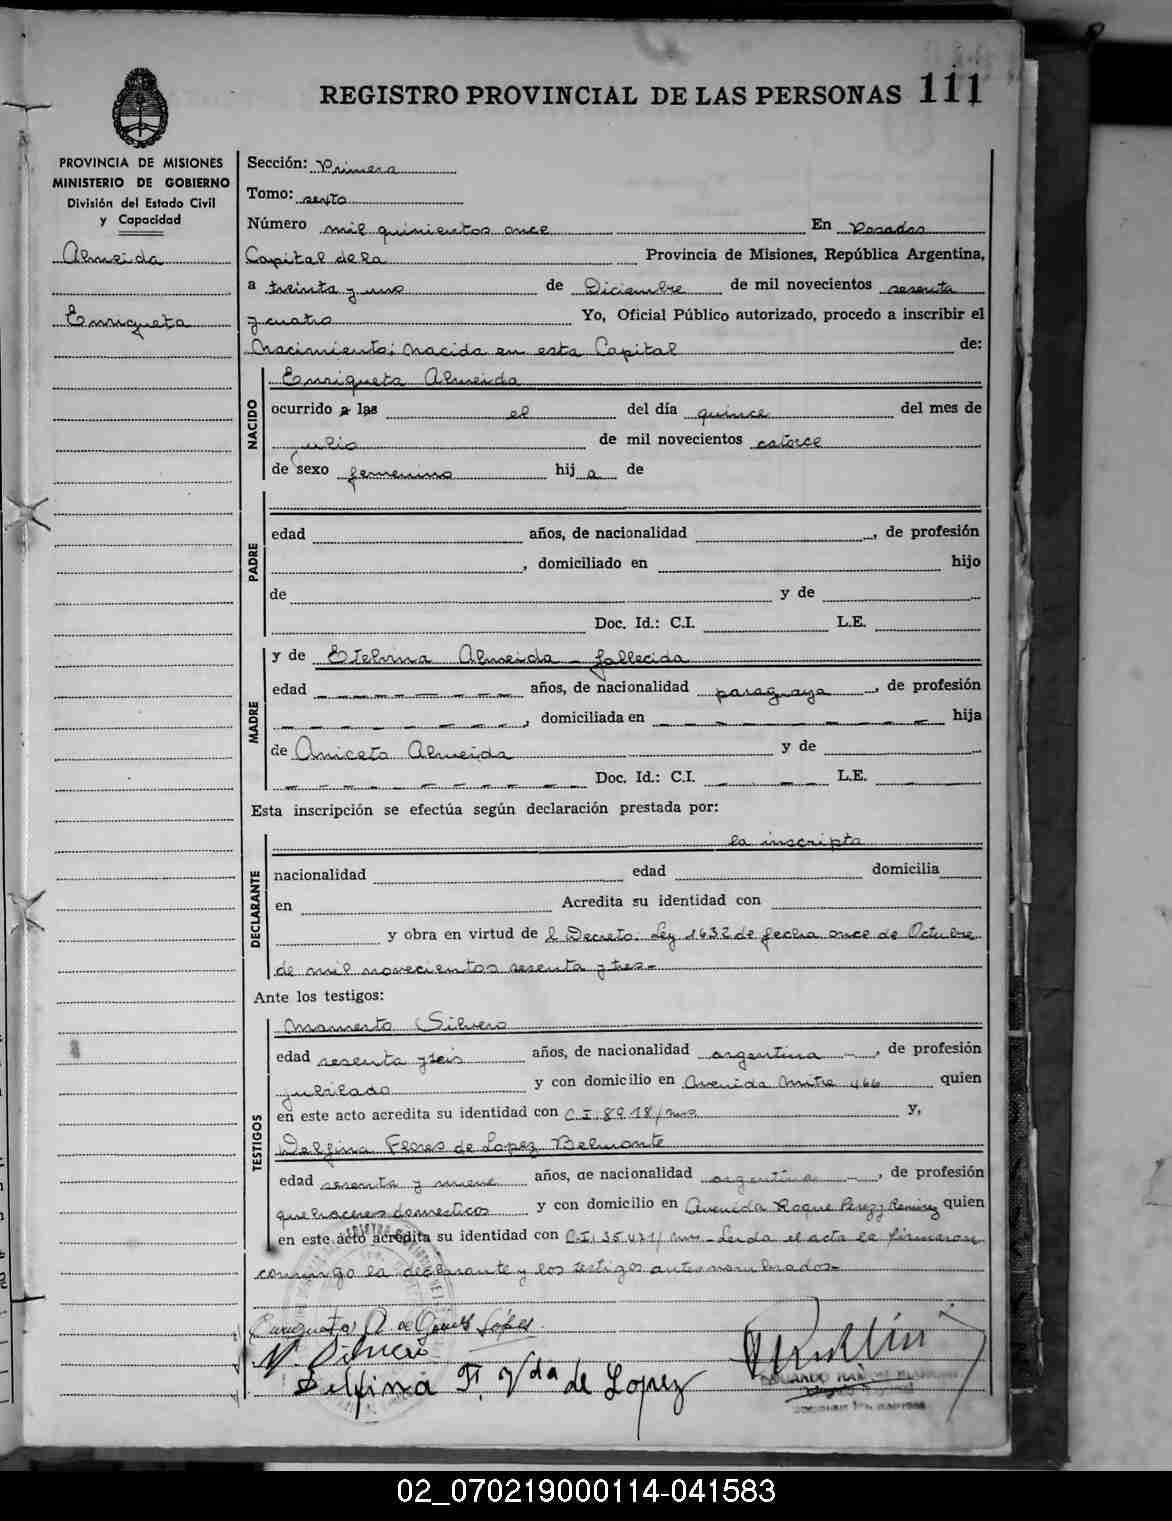 REGISTRO PROVINCIAL DE LAS PERSONAS 111
PROVINCIA DE MISIONES
MINISTERIO DE GOBIERNO
División del Estado Civil
y Capacidad
Almeida
Enriqueta
Sección: Primera
Tomo: sexto
Número mil quinientos once En Posadas
Capital de la Provincia de Misiones, República Argentina,
a treinta y uno de Diciembre de mil novecientos sesenta
y cuatro Yo, Oficial Público autorizado, procedo a inscribir el
Nacimiento: nacida en esta Capital de:
NACIDO
Enriqueta Almeida
ocurrido a las el del día quince del mes de
julio de mil novecientos catorce
de sexo femenino hij a de
PADRE
edad años, de nacionalidad , de profesión
, domiciliado en hijo
de y de
Doc. Id.: C.I. L.E.
MADRE
y de Etelvina Almeida - fallecida
edad años, de nacionalidad paraguaya , de profesión
, domiciliada en hija
de Aniceto Almeida y de
Doc. Id.: C.I. L.E.
Esta inscripción se efectúa según declaración prestada por:
DECLARANTE
la inscripta
nacionalidad edad domicilia
en Acredita su identidad con
y obra en virtud de l Decreto Ley 1632 de fecha once de Octubre
de mil novecientos sesenta y tres-
Ante los testigos:
TESTIGOS
Mamerto Silvero
edad sesenta y seis años, de nacionalidad argentina - , de profesión
jubilado y con domicilio en Avenida Mitre 466 quien
en este acto acredita su identidad con C.I. 8918/ms y,
Delfina Flores de Lopez Belmonte
edad sesenta y nueve años, de nacionalidad argentina - , de profesión
quehaceres domesticos y con domicilio en Avenida Roque Perez y Ramirez quien
en este acto acredita su identidad con C.I. 35.471/ms - Leida el acta la firmaron
conmigo la declarante y los testigos antes nombrados-
Enriqueta A. de Lópes
M. Silvero
Delfina F. Vda de Lopez
02_070219000114-041583